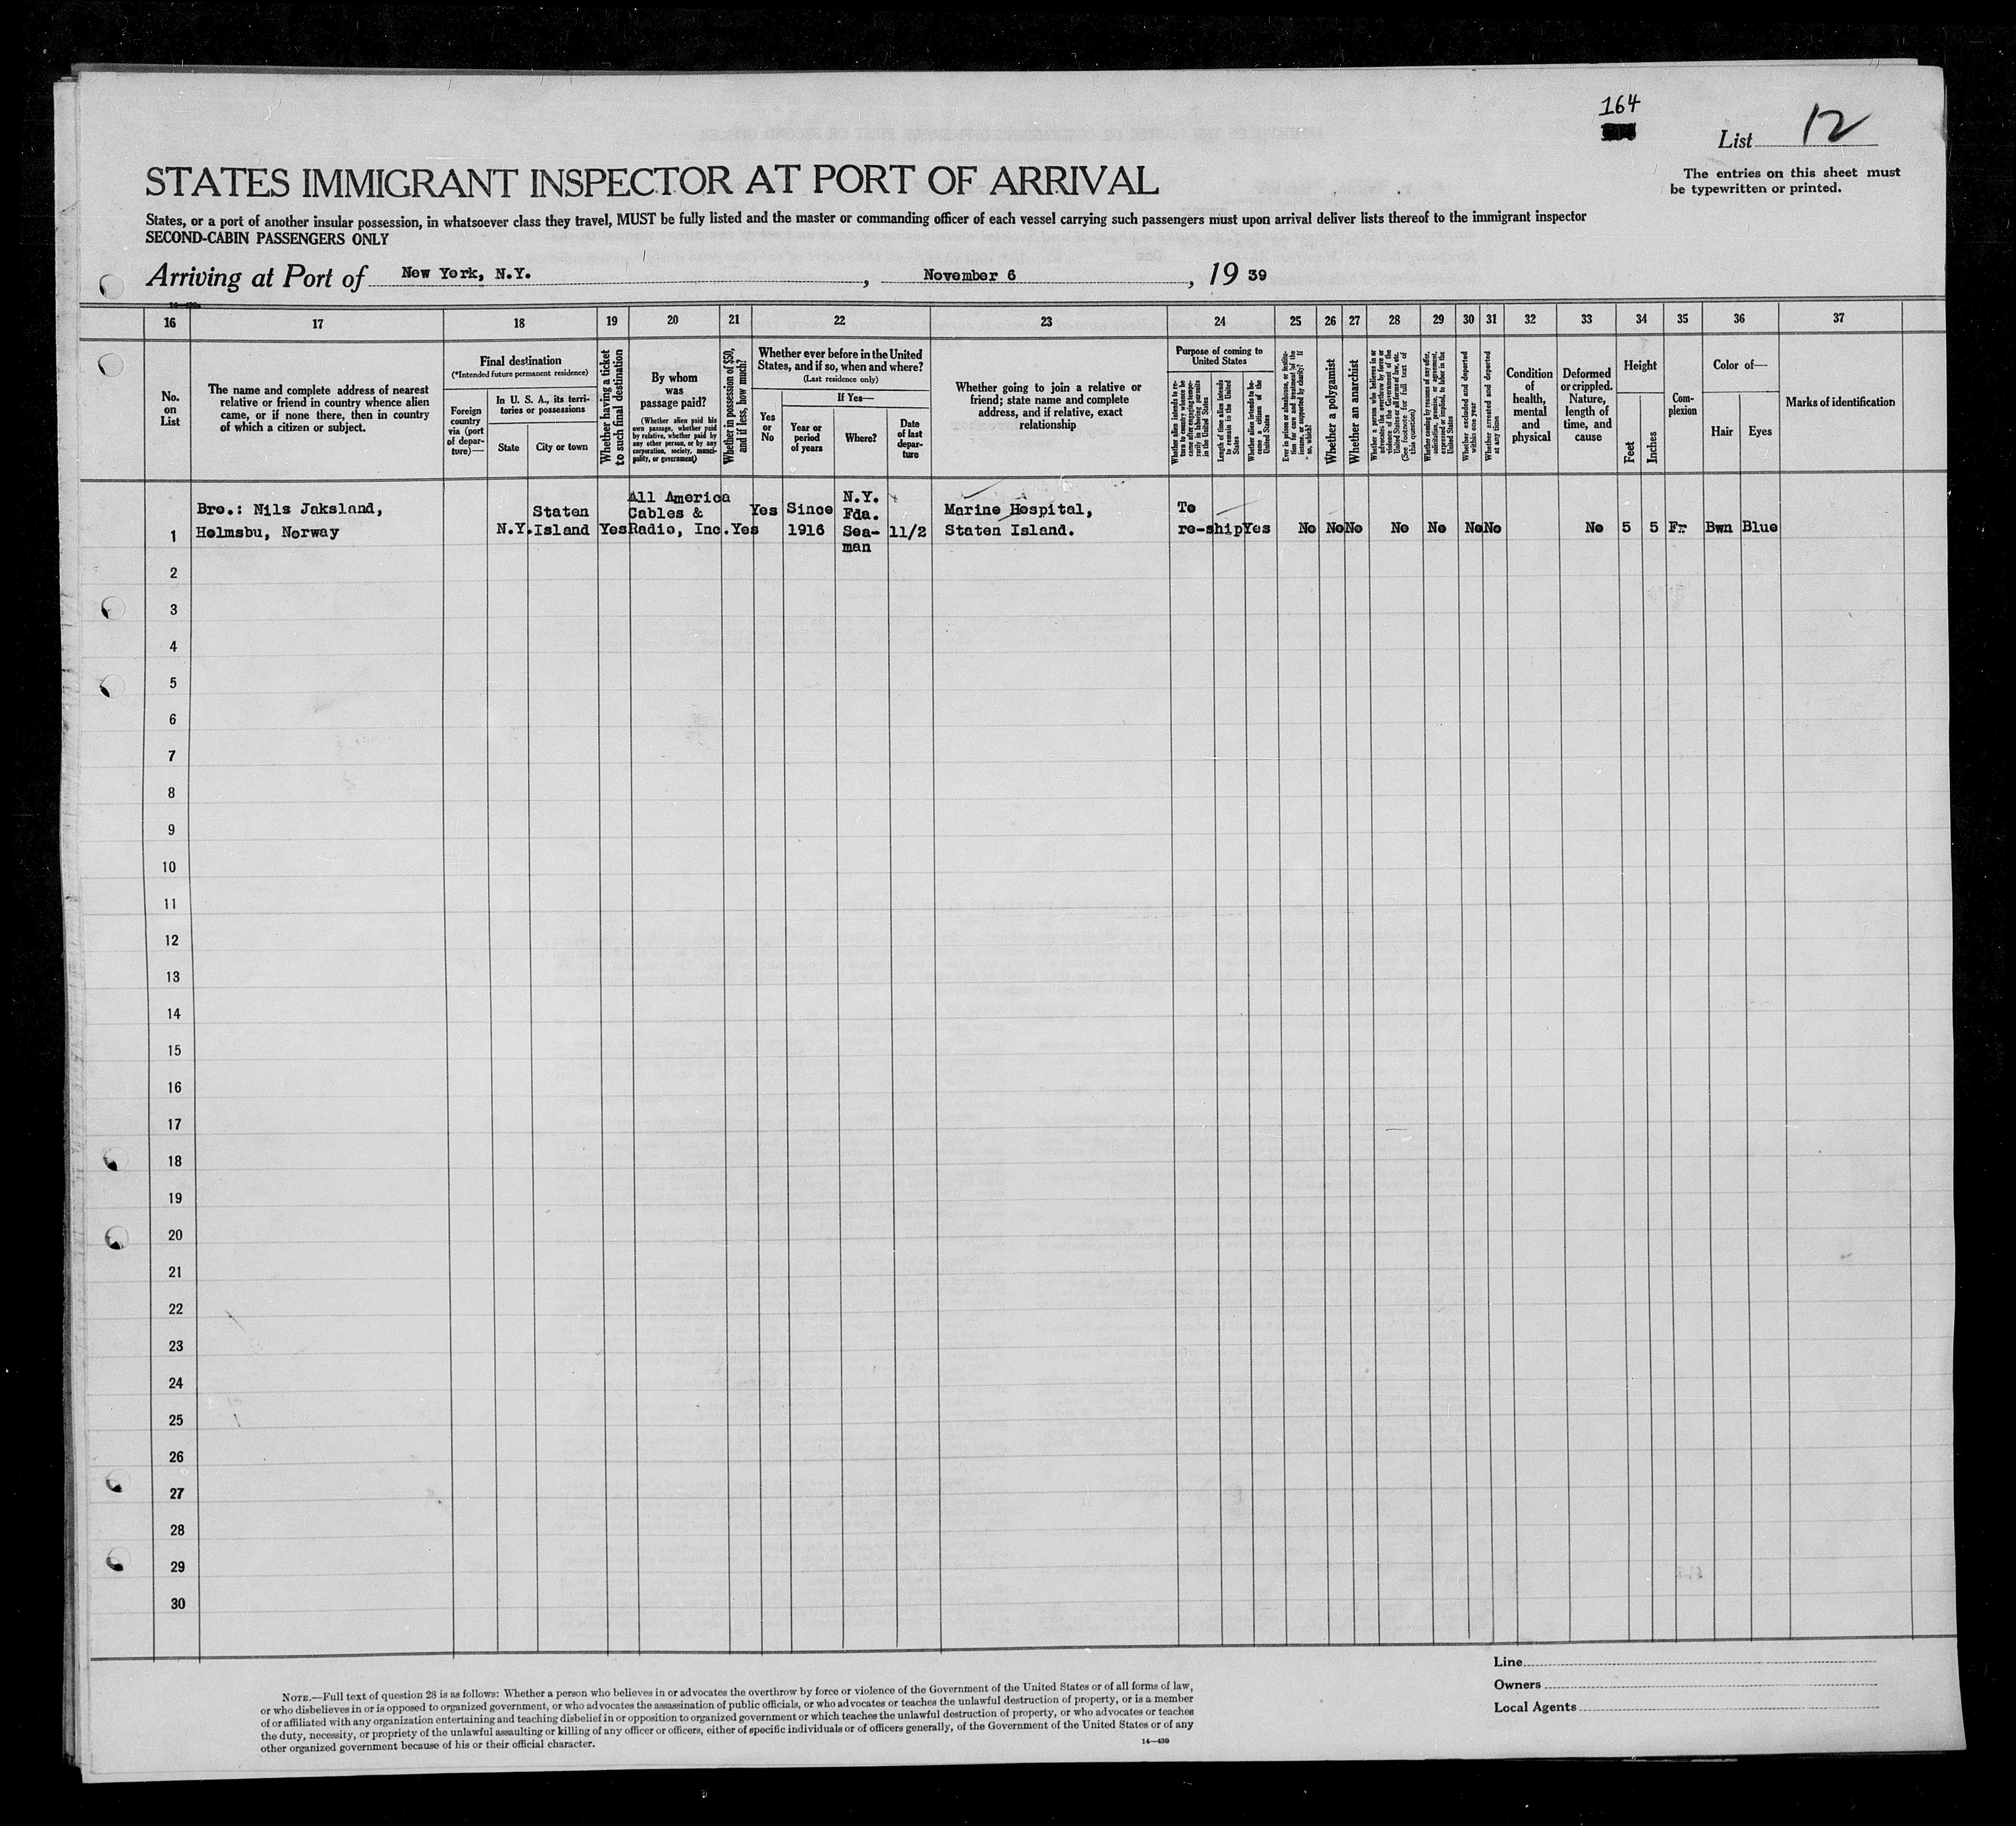 164
List 12
The entries on this sheet must
be typewritten or printed.
STATES IMMIGRANT INSPECTOR AT PORT OF ARRIVAL
States, or a port of another insular possession, in whatsoever class they travel, MUST be fully listed and the master or commanding officer of each vessel carrying such passengers must upon arrival deliver lists thereof to the immigrant inspector
SECOND-CABIN PASSENGERS ONLY
Arriving at Port of New York, N.Y. , November 6 , 19 39
16 17 18 19 20 21 22 23 24 25 26 27 28 29 30 31 32 33 34 35 36 37
No.
on
List
The name and complete address of nearest
relative or friend in country whence alien
came, or if none there, then in country
of which a citizen or subject.
Final destination
(*Intended future permanent residence)
Foreign
country
via (port
of depar-
ture)—
In U. S. A., its terri-
tories or possessions
State
City or town
Whether having a ticket
to such final destination
By whom
was
passage paid?
(Whether alien paid his
own passage, whether paid
by relative, whether paid by
any other person, or by any
corporation, society, munici-
pality, or government)
Whether in possession of $50,
and if less, how much?
Whether ever before in the United
States, and if so, when and where?
(Last residence only)
Yes
or
No
If Yes—
Year or
period
of years
Where?
Date
of last
depar-
ture
Whether going to join a relative or
friend; state name and complete
address, and if relative, exact
relationship
Purpose of coming to
United States
Whether alien intends to re-
turn to country whence he
came after engaging tempo-
rarily in laboring pursuits
in the United States
Length of time alien intends
to remain in the United
States
Whether alien intends to be-
come a citizen of the
United States
Ever in prison or almshouse, or institu-
tion for care and treatment of the
insane, or supported by charity? If
so, which?
Whether a polygamist
Whether an anarchist
Whether a person who believes in or
advocates the overthrow by force or
violence of the Government of the
United States or all forms of law, etc.
(See footnote for full text of
this question)
Whether coming by reason of any offer,
solicitation, promise, or agreement,
expressed or implied, to labor in the
United States
Whether excluded and deported
within one year
Whether arrested and deported
at any time
Condition
of
health,
mental
and
physical
Deformed
or crippled.
Nature,
length of
time, and
cause
Height
Feet
Inches
Com-
plexion
Color of—
Hair
Eyes
Marks of identification
1 Bro.: Nils Jaksland,
Holmsbu, Norway
N.Y.
Staten
Island
Yes
All America
Cables &
Radio, Inc.
Yes
Yes
Since
1916
N.Y.
Fda.
Sea-
man
11/2
Marine Hospital,
Staten Island.
To
re-ship
Yes No No No No No No No No 5 5 Fr. Bwn Blue
2
3
4
5
6
7
8
9
10
11
12
13
14
15
16
17
18
19
20
21
22
23
24
25
26
27
28
29
30
Line
Owners
Local Agents
NOTE.—Full text of question 28 is as follows: Whether a person who believes in or advocates the overthrow by force or violence of the Government of the United States or of all forms of law,
or who disbelieves in or is opposed to organized government, or who advocates the assassination of public officials, or who advocates or teaches the unlawful destruction of property, or is a member
of or affiliated with any organization entertaining and teaching disbelief in or opposition to organized government or which teaches the unlawful destruction of property, or who advocates or teaches
the duty, necessity, or propriety of the unlawful assaulting or killing of any officer or officers, either of specific individuals or of officers generally, of the Government of the United States or of any
other organized government because of his or their official character.
14—430